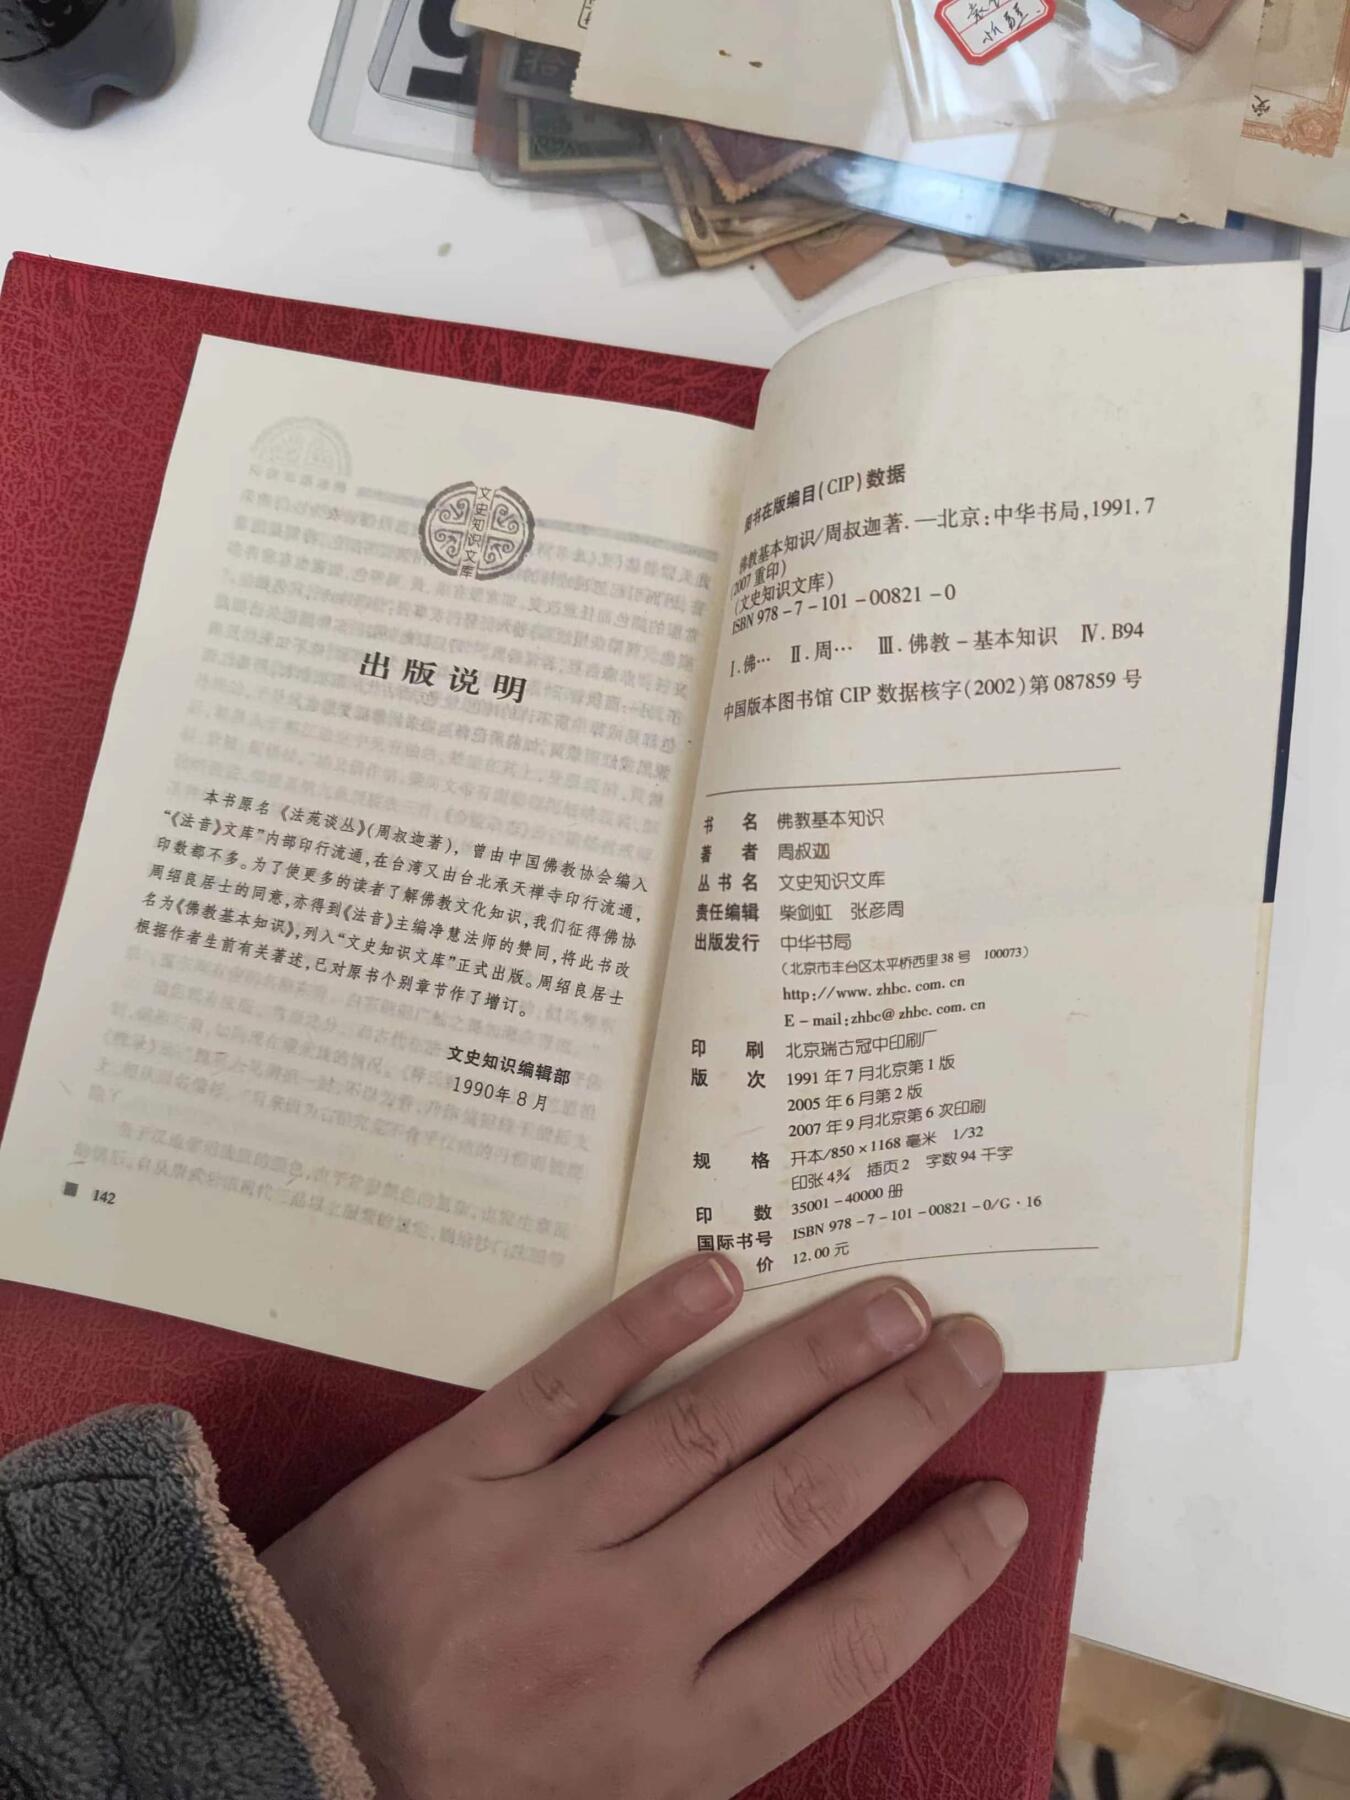 拾
文史知识文库
出版说明
本书原名《法苑谈丛》(周叔迦著)，曾由中国佛教协会编入
“《法音》文库”内部印行流通，在台湾又由台北承天禅寺印行流通，
印数都不多。为了使更多的读者了解佛教文化知识，我们征得佛协
周绍良居士的同意，亦得到《法音》主编净慧法师的赞同，将此书改
名为《佛教基本知识》，列入“文史知识文库”正式出版。周绍良居士
根据作者生前有关著述，已对原书个别章节作了增订。
文史知识编辑部
1990年8月
142
图书在版编目(CIP)数据
佛教基本知识/周叔迦著.—北京：中华书局，1991.7
(2007重印)
(文史知识文库)
ISBN 978-7-101-00821-0
Ⅰ.佛… Ⅱ.周… Ⅲ.佛教-基本知识 Ⅳ.B94
中国版本图书馆CIP数据核字(2002)第087859号
书名 佛教基本知识
著者 周叔迦
丛书名 文史知识文库
责任编辑 柴剑虹 张彦周
出版发行 中华书局
(北京市丰台区太平桥西里38号 100073)
http://www.zhbc.com.cn
E-mail:zhbc@zhbc.com.cn
印刷 北京瑞古冠中印刷厂
版次 1991年7月北京第1版
2005年6月第2版
2007年9月北京第6次印刷
规格 开本/850×1168毫米 1/32
印张4¾ 插页2 字数94千字
印数 35001-40000册
国际书号 ISBN 978-7-101-00821-0/G·16
价 12.00元